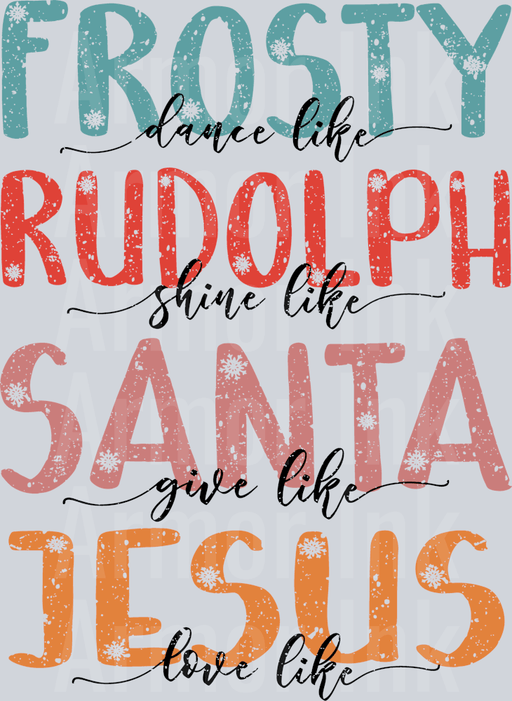 FROSTY
dance like
RUDOLPH
shine like
SANTA
give like
JESUS
love like
Armor Ink
Armor Ink
Armor Ink
Armor Ink